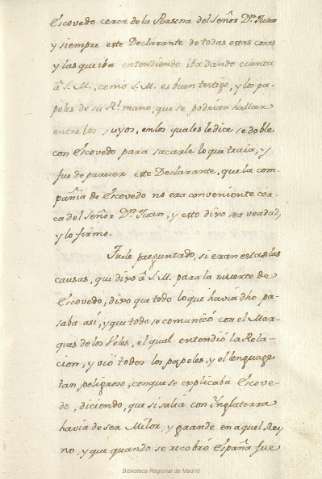 Escovedo cerca de la Persona del Señor Dn. Juan
y siempre este Declarante de todas estas cosas
y las que iba entendiendo iba dando cuenta
a S. M., como S. M. es buen testigo, y los pa-
peles de su Rl. mano, que se podrian hallar
entre los suyos, en los quales le dice se doble
con Escovedo para sacarle lo que traia, y
fue de parecer este Declarante, que la com-
pañia de Escovedo no era conveniente cer-
ca del Señor Dn. Juan, y esto dixo ser verdad,
y lo firmo.
Fuele preguntado, si eran estas las
causas, que dixo á S. M. para la muerte de
Escovedo, dixo que todo lo que havia dho pa-
saba asi, y que todo se comunicó con el Mar-
ques de los Velez, el qual entendió la Rela-
cion, y vió todos los papeles, y el lenguage
tan peligroso, con que se explicaba Escove-
do, diciendo, que si salia con Ynglaterra
havia de ser Milor, y grande en aquel Rey
no, y que quando se recobró España fue
Biblioteca Regional de Madrid